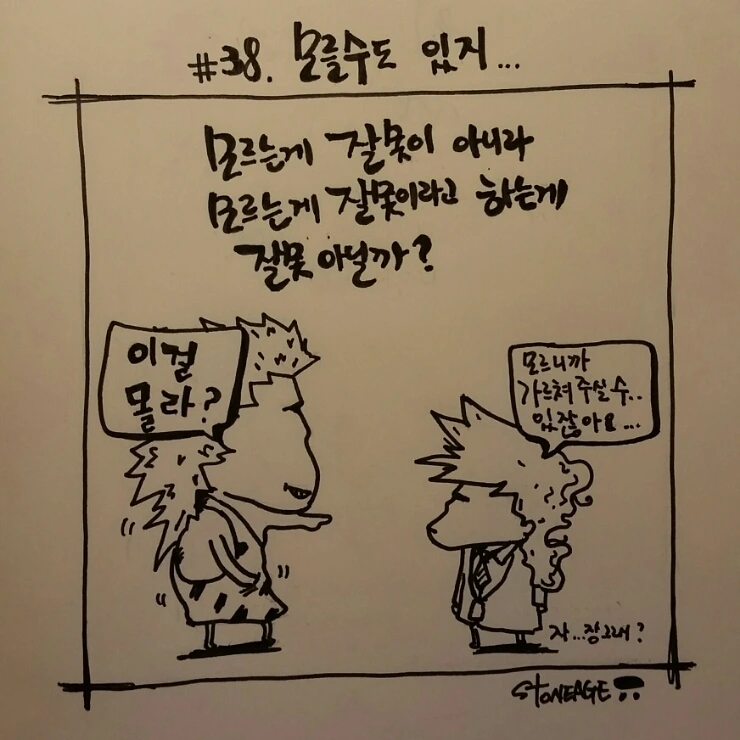 #38. 모를수도 있지...
모르는게 잘못이 아니라
모르는게 잘못이라고 하는게
잘못 아닐까?
이걸
몰라?
모르니까
가르쳐주실 수..
있잖아요...
STONEAGE